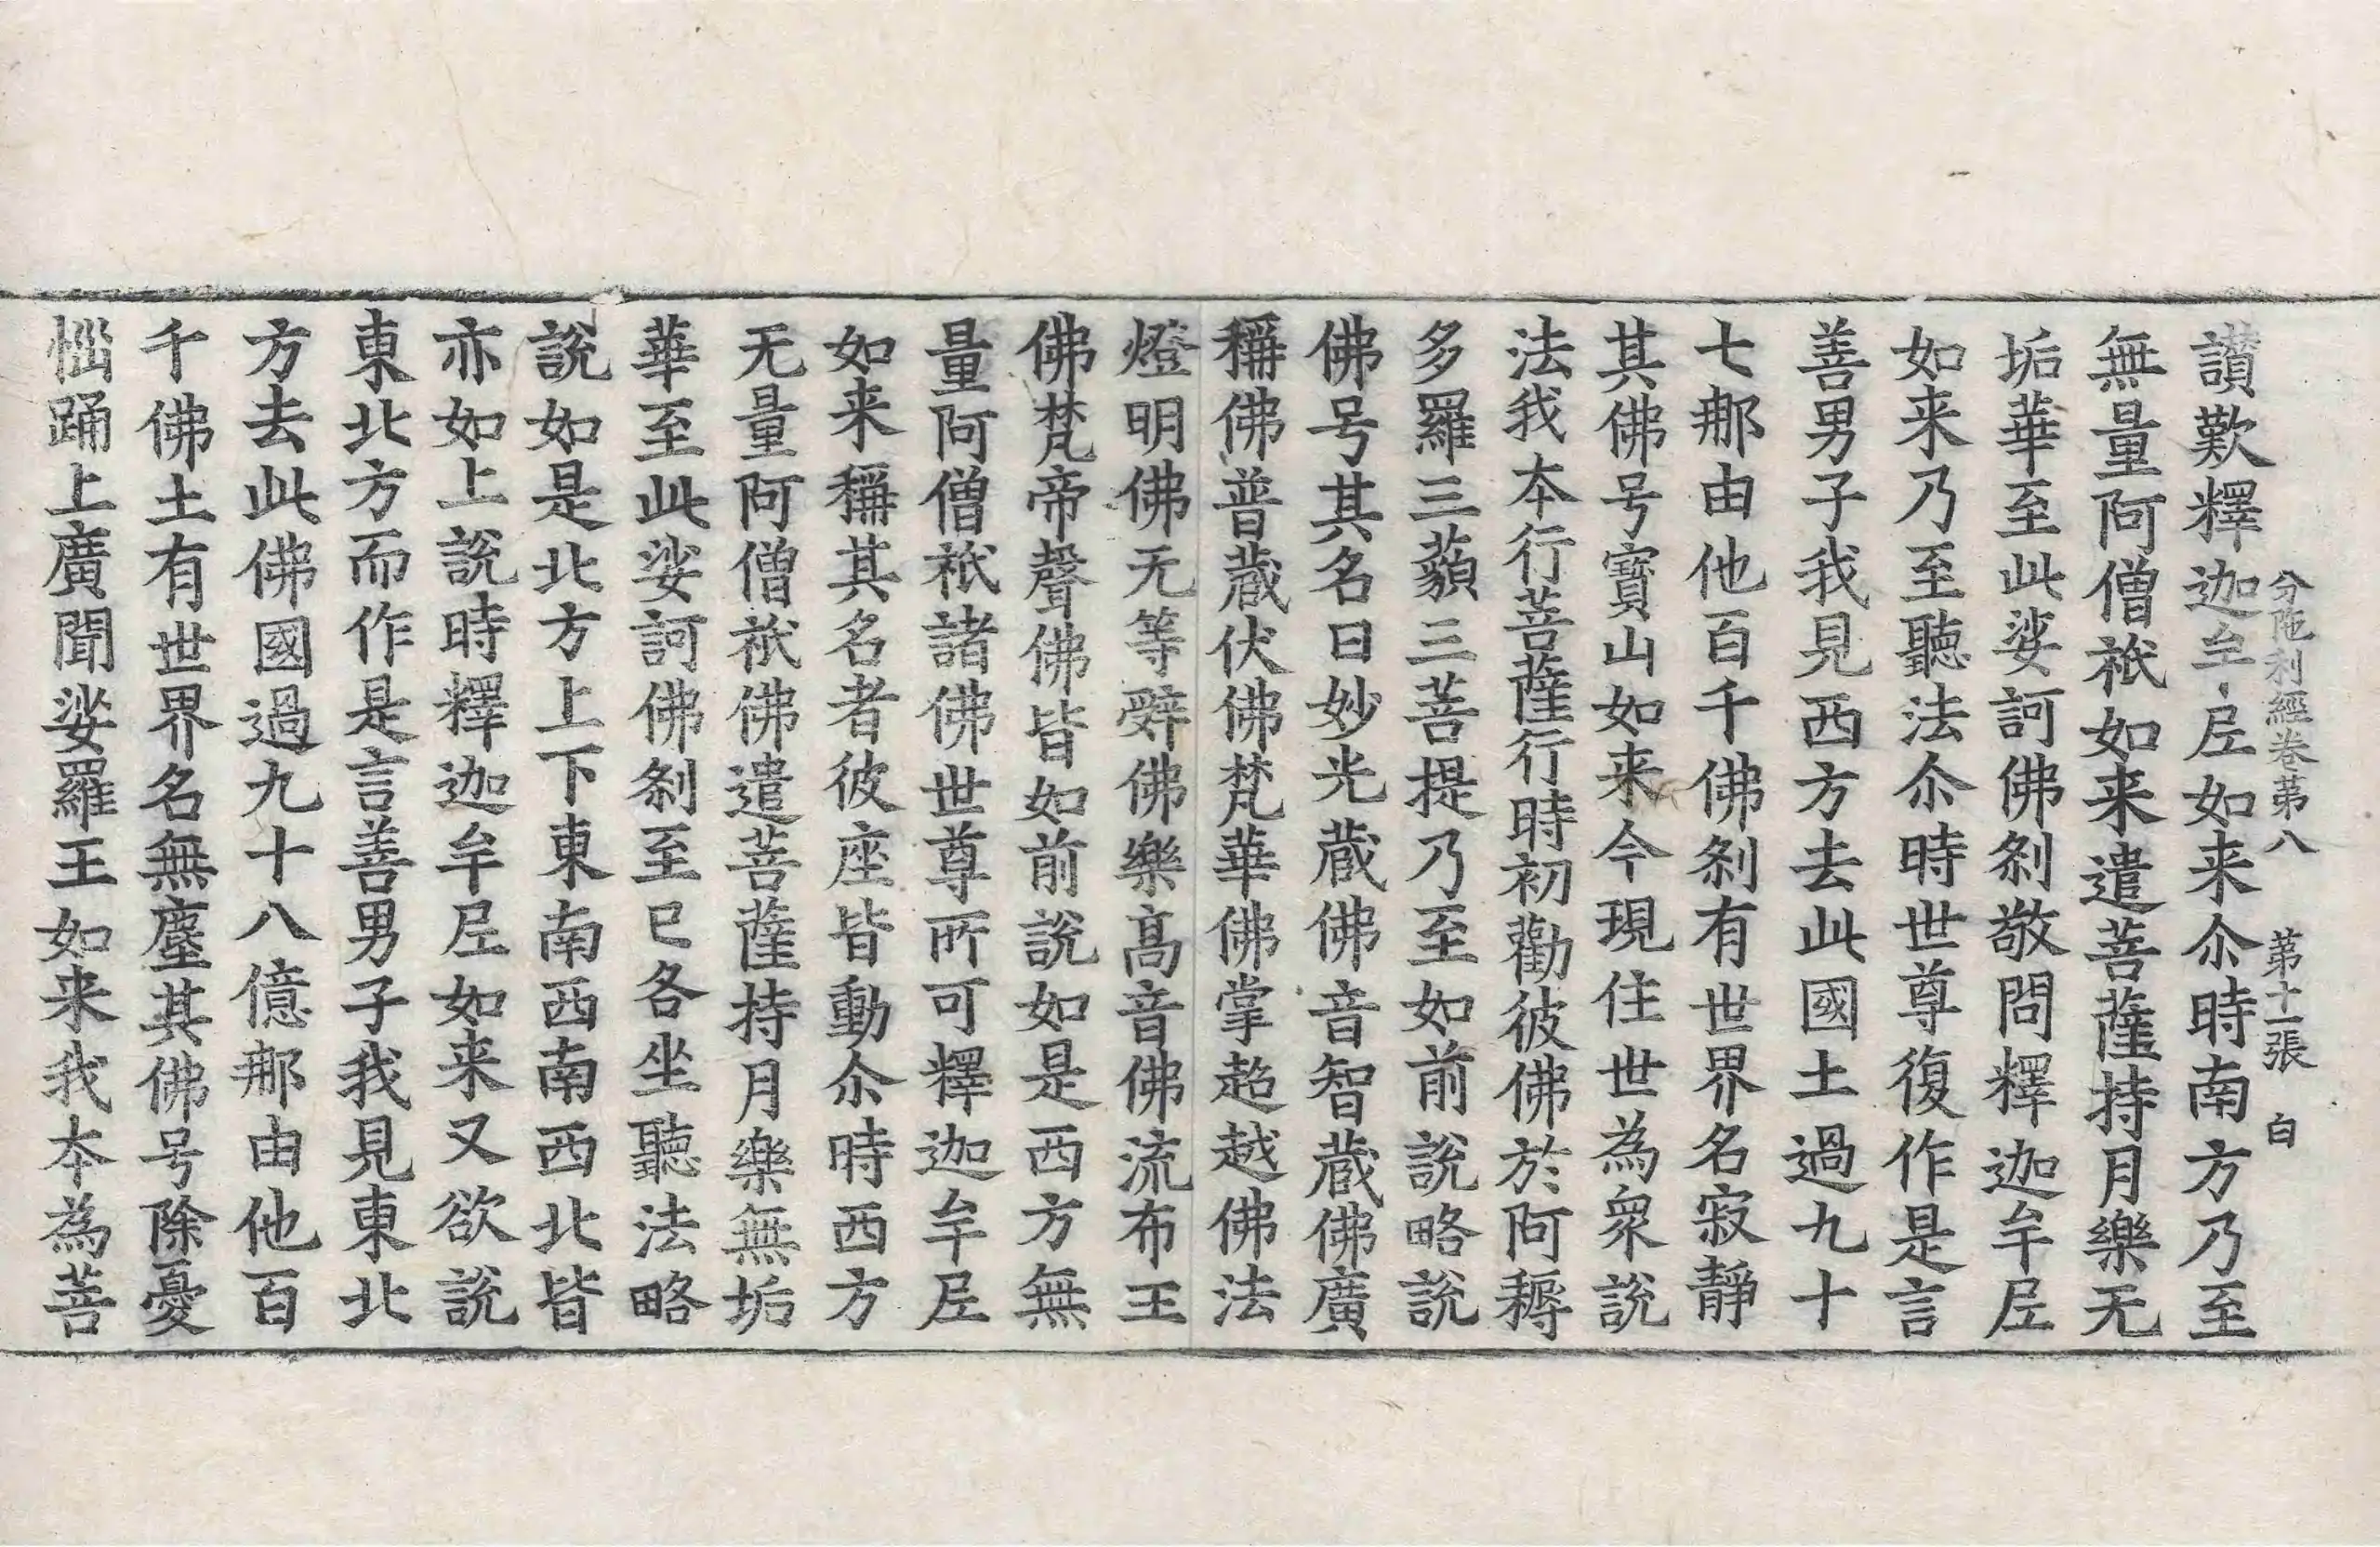 分陁利經卷第八　第十一張　白
讃歎釋迦牟尼如来尒時南方乃至
無量阿僧祇如来遣菩薩持月樂无
垢華至此娑訶佛刹敬問釋迦牟尼
如来乃至聽法尒時世尊復作是言
善男子我見西方去此國土過九十
七那由他百千佛刹有世界名寂靜
其佛号寶山如来今現住世為衆說
法我本行菩薩行時初勸彼佛於阿耨
多羅三藐三菩提乃至如前說略說
佛号其名曰妙光蔵佛音智蔵佛廣
稱佛普蔵伏佛梵華佛掌超越佛法
燈明佛无等辤佛樂髙音佛流布王
佛梵帝聲佛皆如前說如是西方無
量阿僧祇諸佛世尊所可釋迦牟尼
如来稱其名者彼座皆動尒時西方
无量阿僧祇佛遣菩薩持月樂無垢
華至此娑訶佛刹至已各坐聽法略
說如是北方上下東南西南西北皆
亦如上說時釋迦牟尼如来又欲說
東北方而作是言善男子我見東北
方去此佛國過九十八億那由他百
千佛土有世界名無塵其佛号除憂
惱踊上廣聞娑羅王如来我本為菩